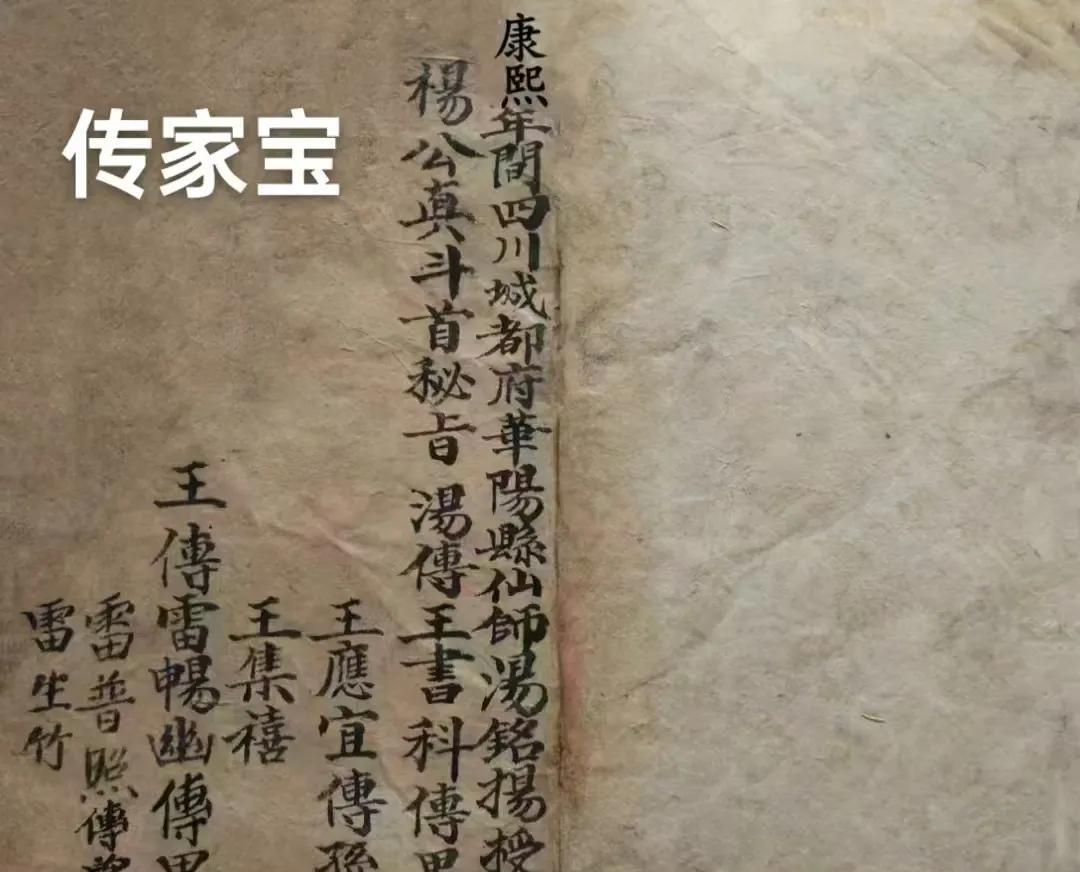 传家宝
康熙年間四川城都府華陽縣仙師湯銘揚授
楊公真斗首秘旨湯傳王書科傳男
王應宜傳孫
王集禧
王傳雷暢幽傳男
雷普照傳
雷生竹